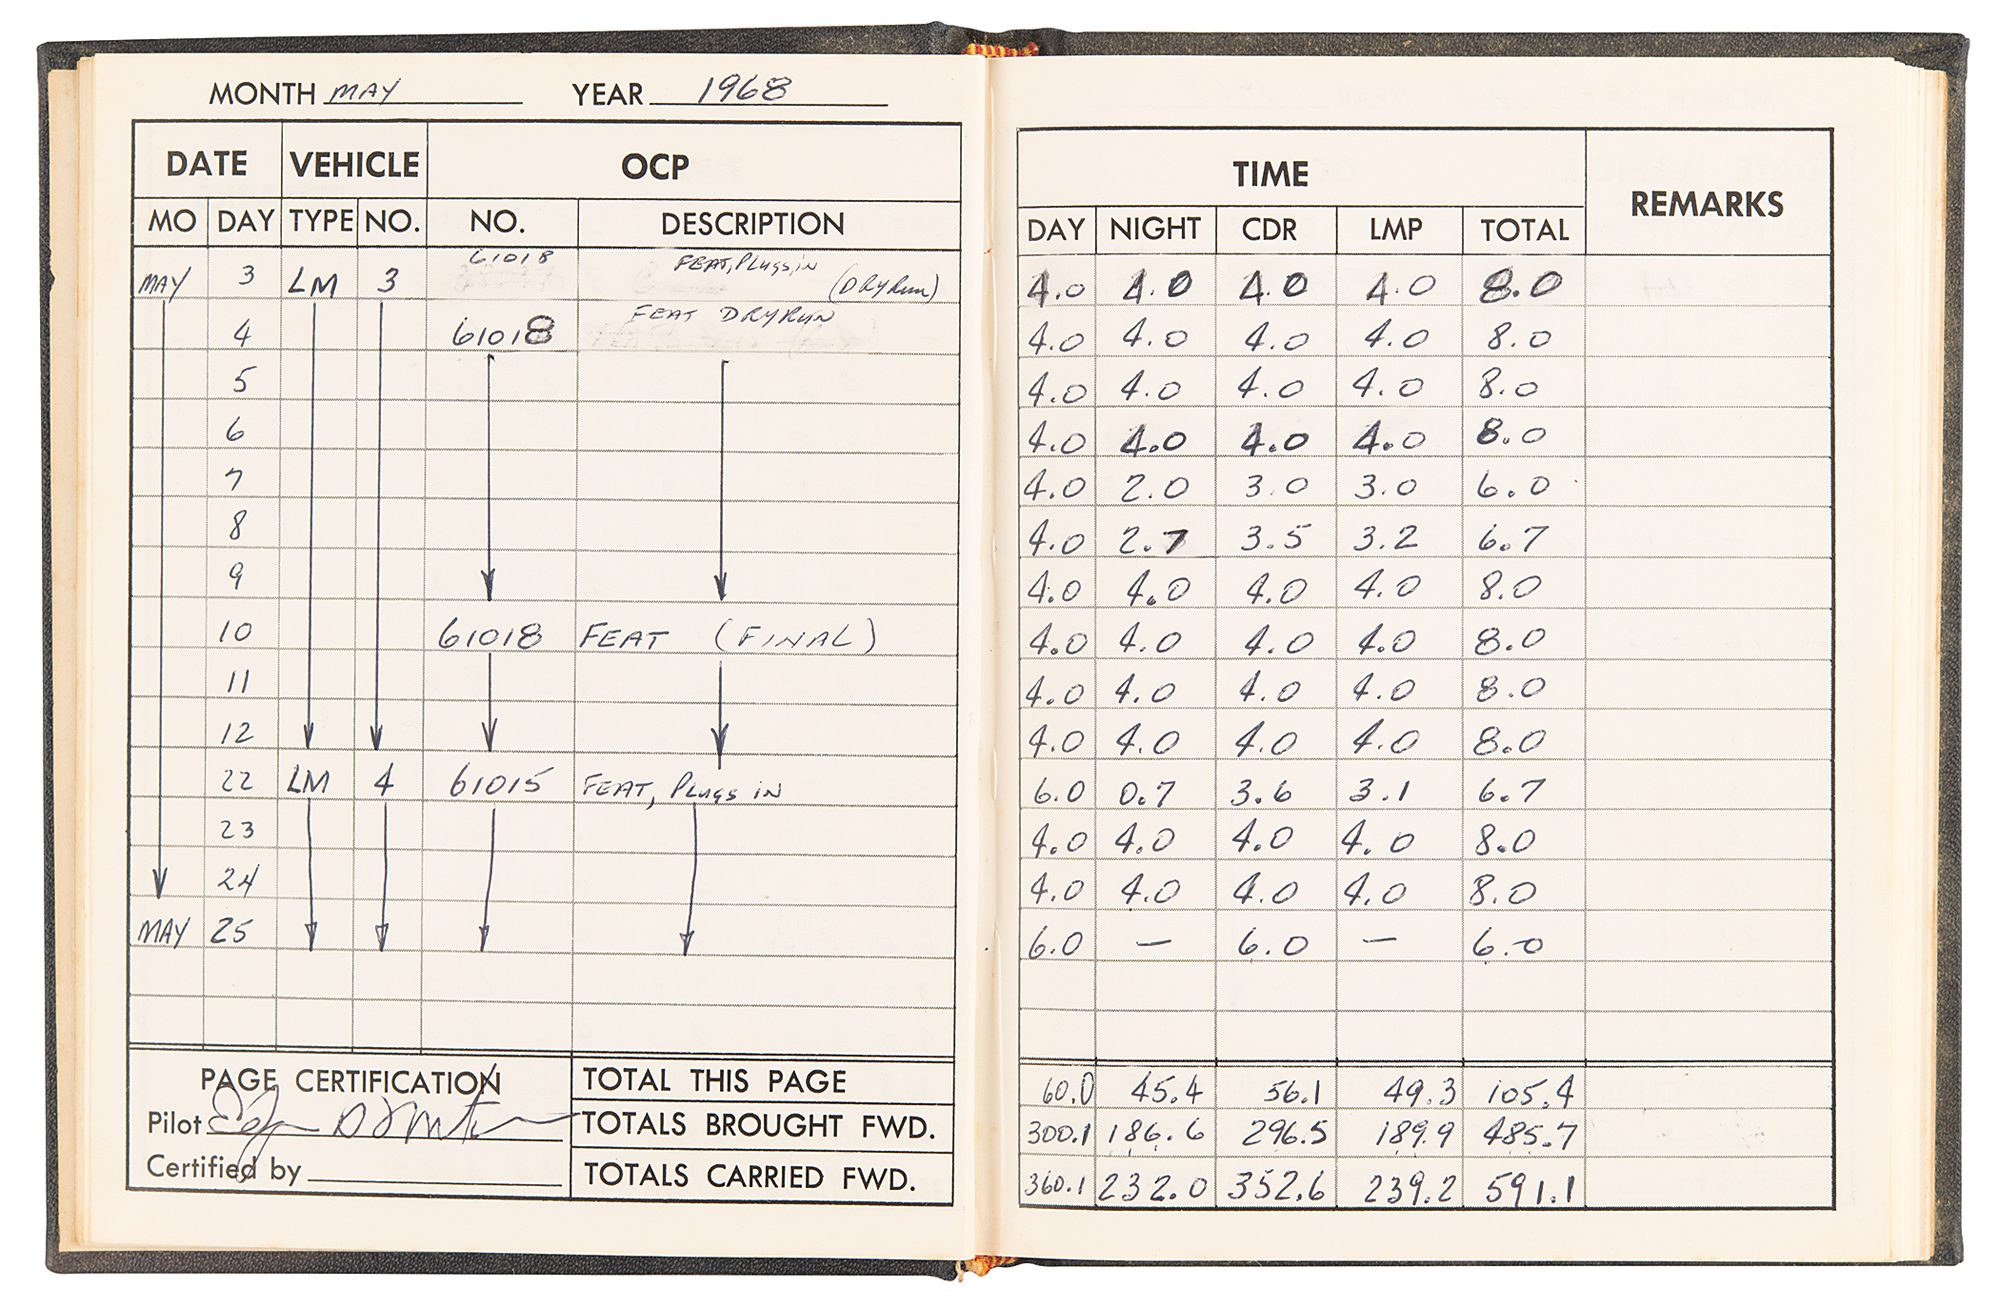 MONTH MAY YEAR 1968
DATE VEHICLE OCP TIME REMARKS
MO DAY TYPE NO. NO. DESCRIPTION DAY NIGHT CDR LMP TOTAL
MAY 3 LM 3 61018 FEAT, Plugs in (DRY Run) 4.0 4.0 4.0 4.0 8.0
4 61018 FEAT DRY RUN 4.0 4.0 4.0 4.0 8.0
5 4.0 4.0 4.0 4.0 8.0
6 4.0 4.0 4.0 4.0 8.0
7 4.0 2.0 3.0 3.0 6.0
8 4.0 2.7 3.5 3.2 6.7
9 4.0 4.0 4.0 4.0 8.0
10 61018 FEAT (FINAL) 4.0 4.0 4.0 4.0 8.0
11 4.0 4.0 4.0 4.0 8.0
12 4.0 4.0 4.0 4.0 8.0
22 LM 4 61015 FEAT, Plugs in 6.0 0.7 3.6 3.1 6.7
23 4.0 4.0 4.0 4.0 8.0
24 4.0 4.0 4.0 4.0 8.0
MAY 25 6.0 — 6.0 — 6.0
PAGE CERTIFICATION TOTAL THIS PAGE 60.0 45.4 56.1 49.3 105.4
Pilot TOTALS BROUGHT FWD. 300.1 186.6 296.5 189.9 485.7
Certified by TOTALS CARRIED FWD. 360.1 232.0 352.6 239.2 591.1